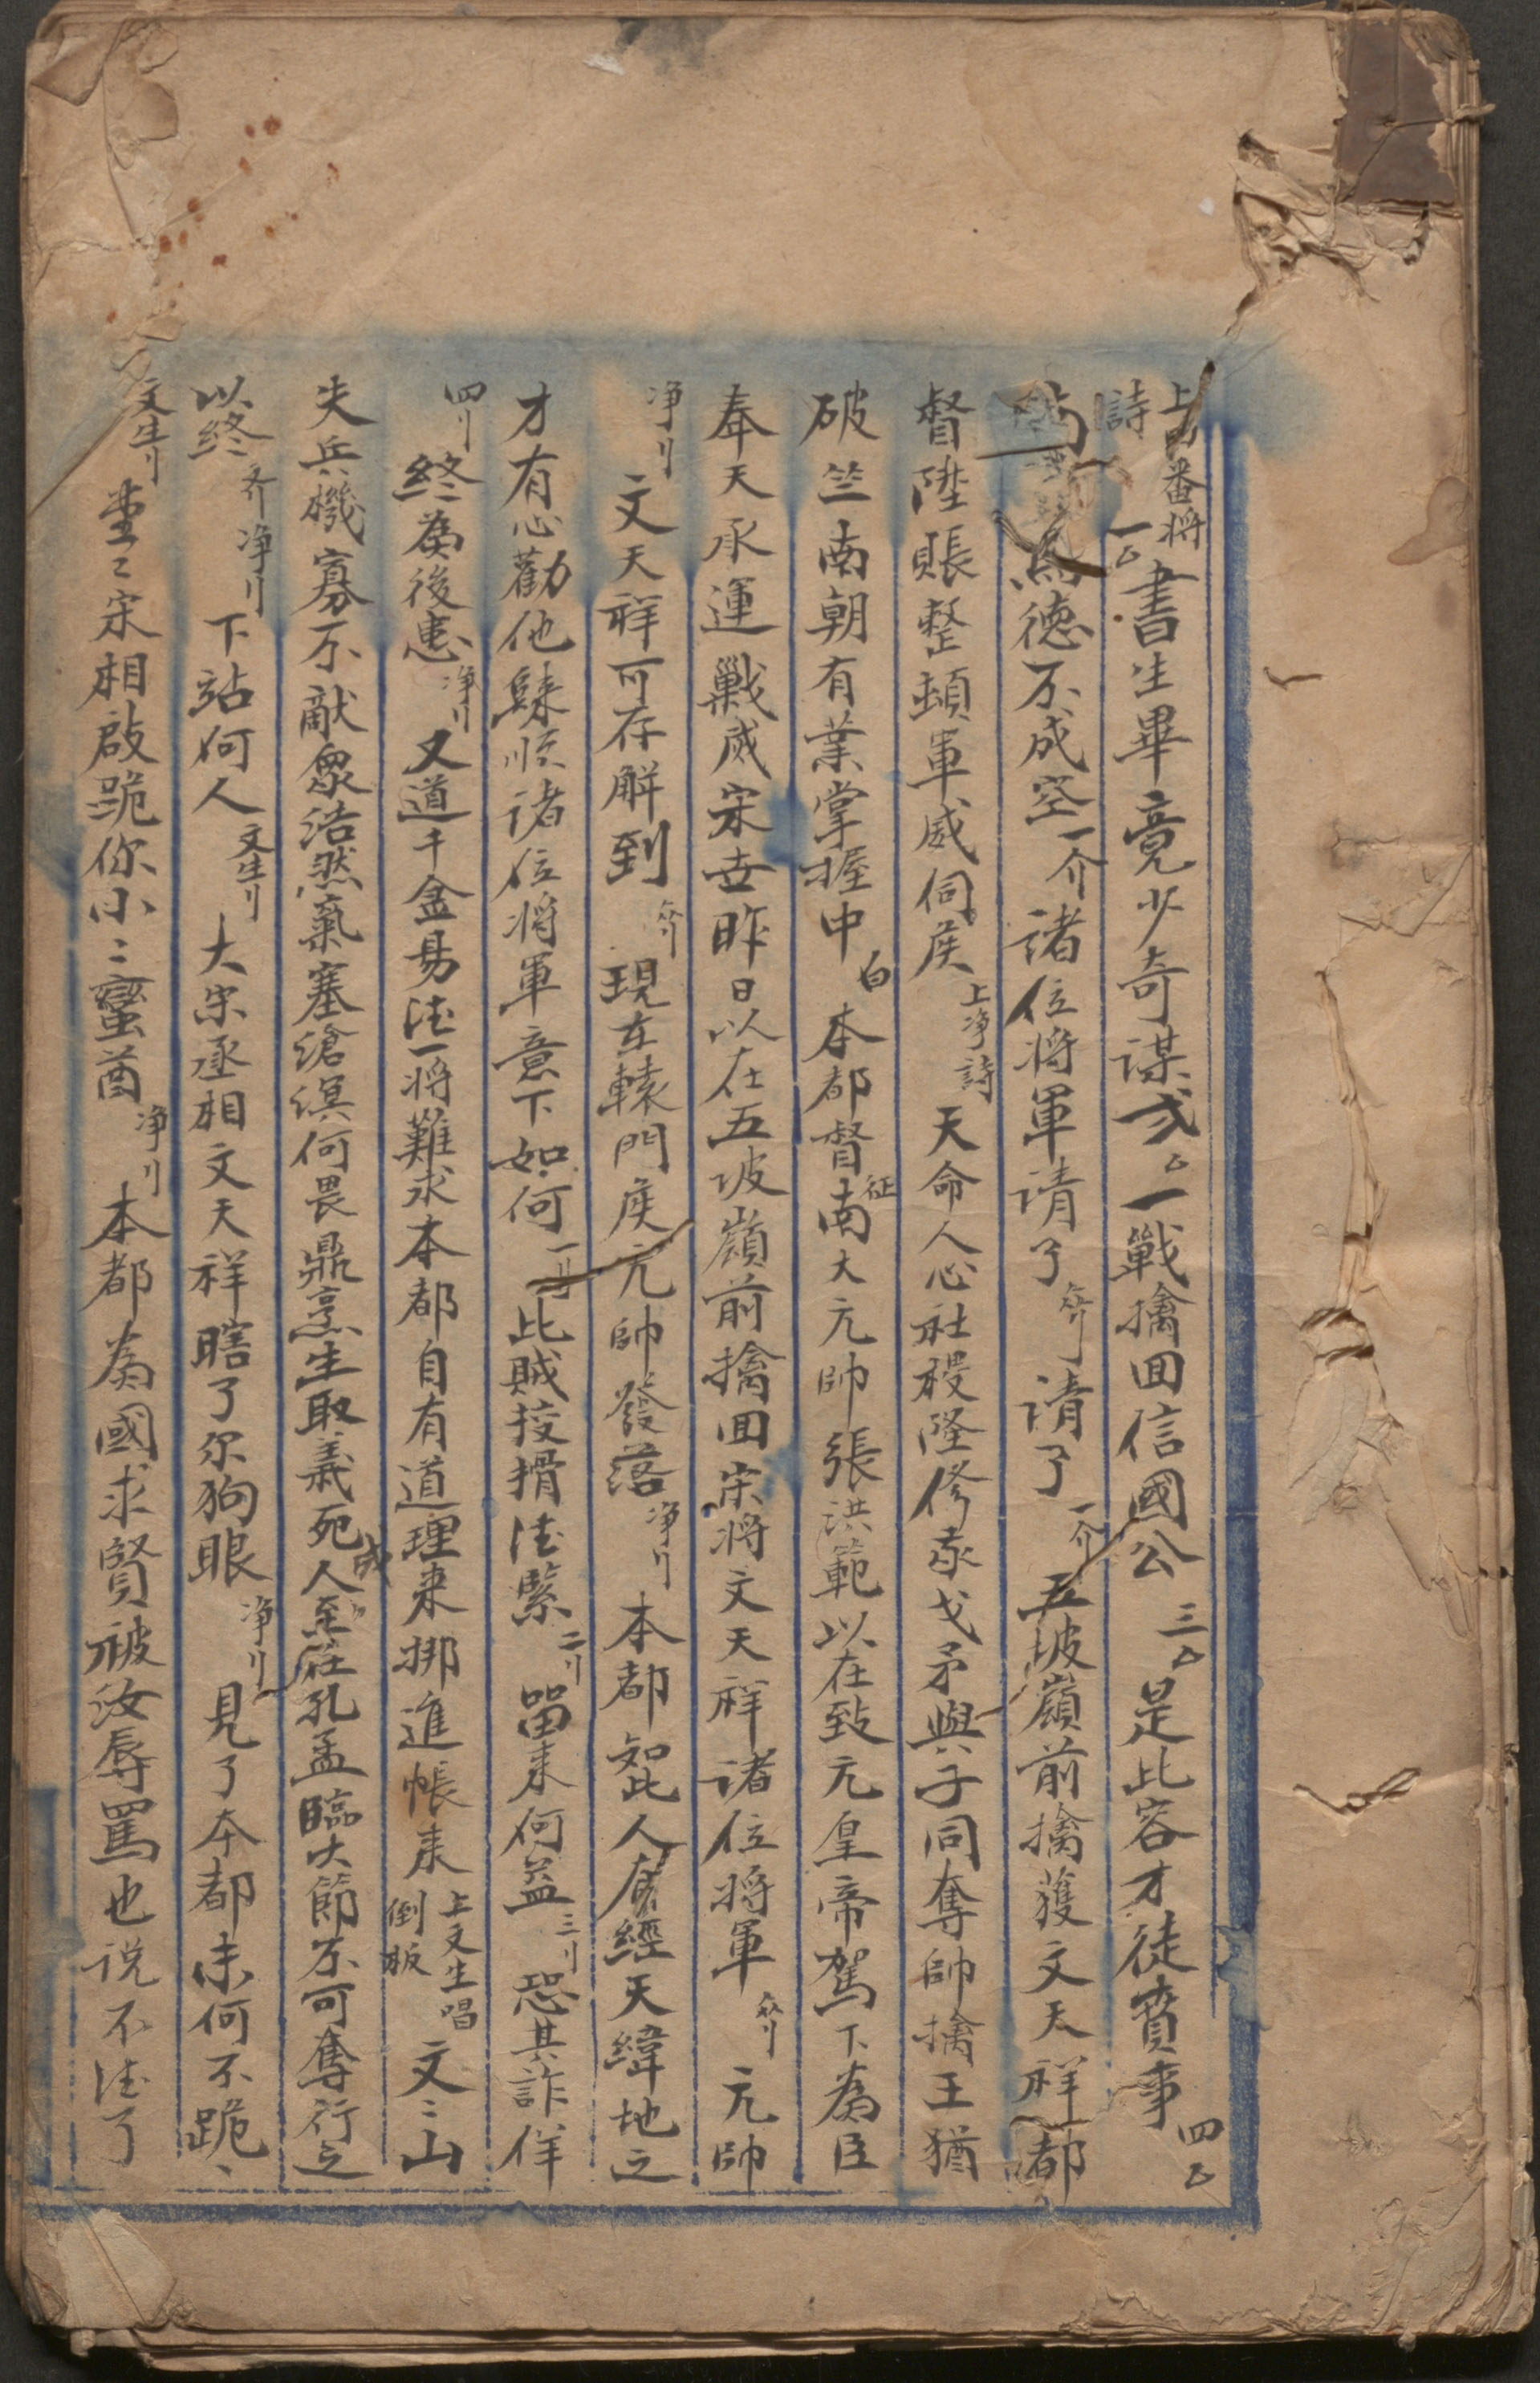 上四番將詩 一厶書生畢竟少奇謀弍厶一戰擒囬信國公 三厶是此容才徒賁事 四厶
為德不成空一介諸位將軍请了 众刂请了 一介五坡嶺前擒獲文天祥都
督陞賬整頓軍威伺矦 上净詩天命人心社稷隆修我戈矛與子同奪帥擒王猶
破竺南朝有業掌握中 白本都督征南大元帥張洪範以在致元皇帝駕下為臣
奉天承運戰威宋世昨日以在五坡嶺前擒囬宋將文天祥诸位將軍 众刂元帥
净刂文天祥可存解到 众刂現在轅門矦元帥發落 净刂本都知此人有經天緯地之
才有心勸他歸順诸位将軍意下如何 一刂此賊狡猾淂緊 二刂留来何益 三刂恐其詐佯
四刂終為後患 净刂又道千金易淂一将難求本都自有道理来挪進帳来 上文生唱倒板 文〻山
失兵機寡不敵衆浩然氣塞滄溟何畏鼎烹生取義死成人至在孔孟臨大節不可奪行之
以終 齐净刂下站何人 文生刂大宋丞相文天祥瞎了尔狗眼 净刂見了本都未何不跪〻
文生刂堂〻宋相啟跪你小〻蠻酋 净刂本都為國求賢被汝辱罵也说不淂了